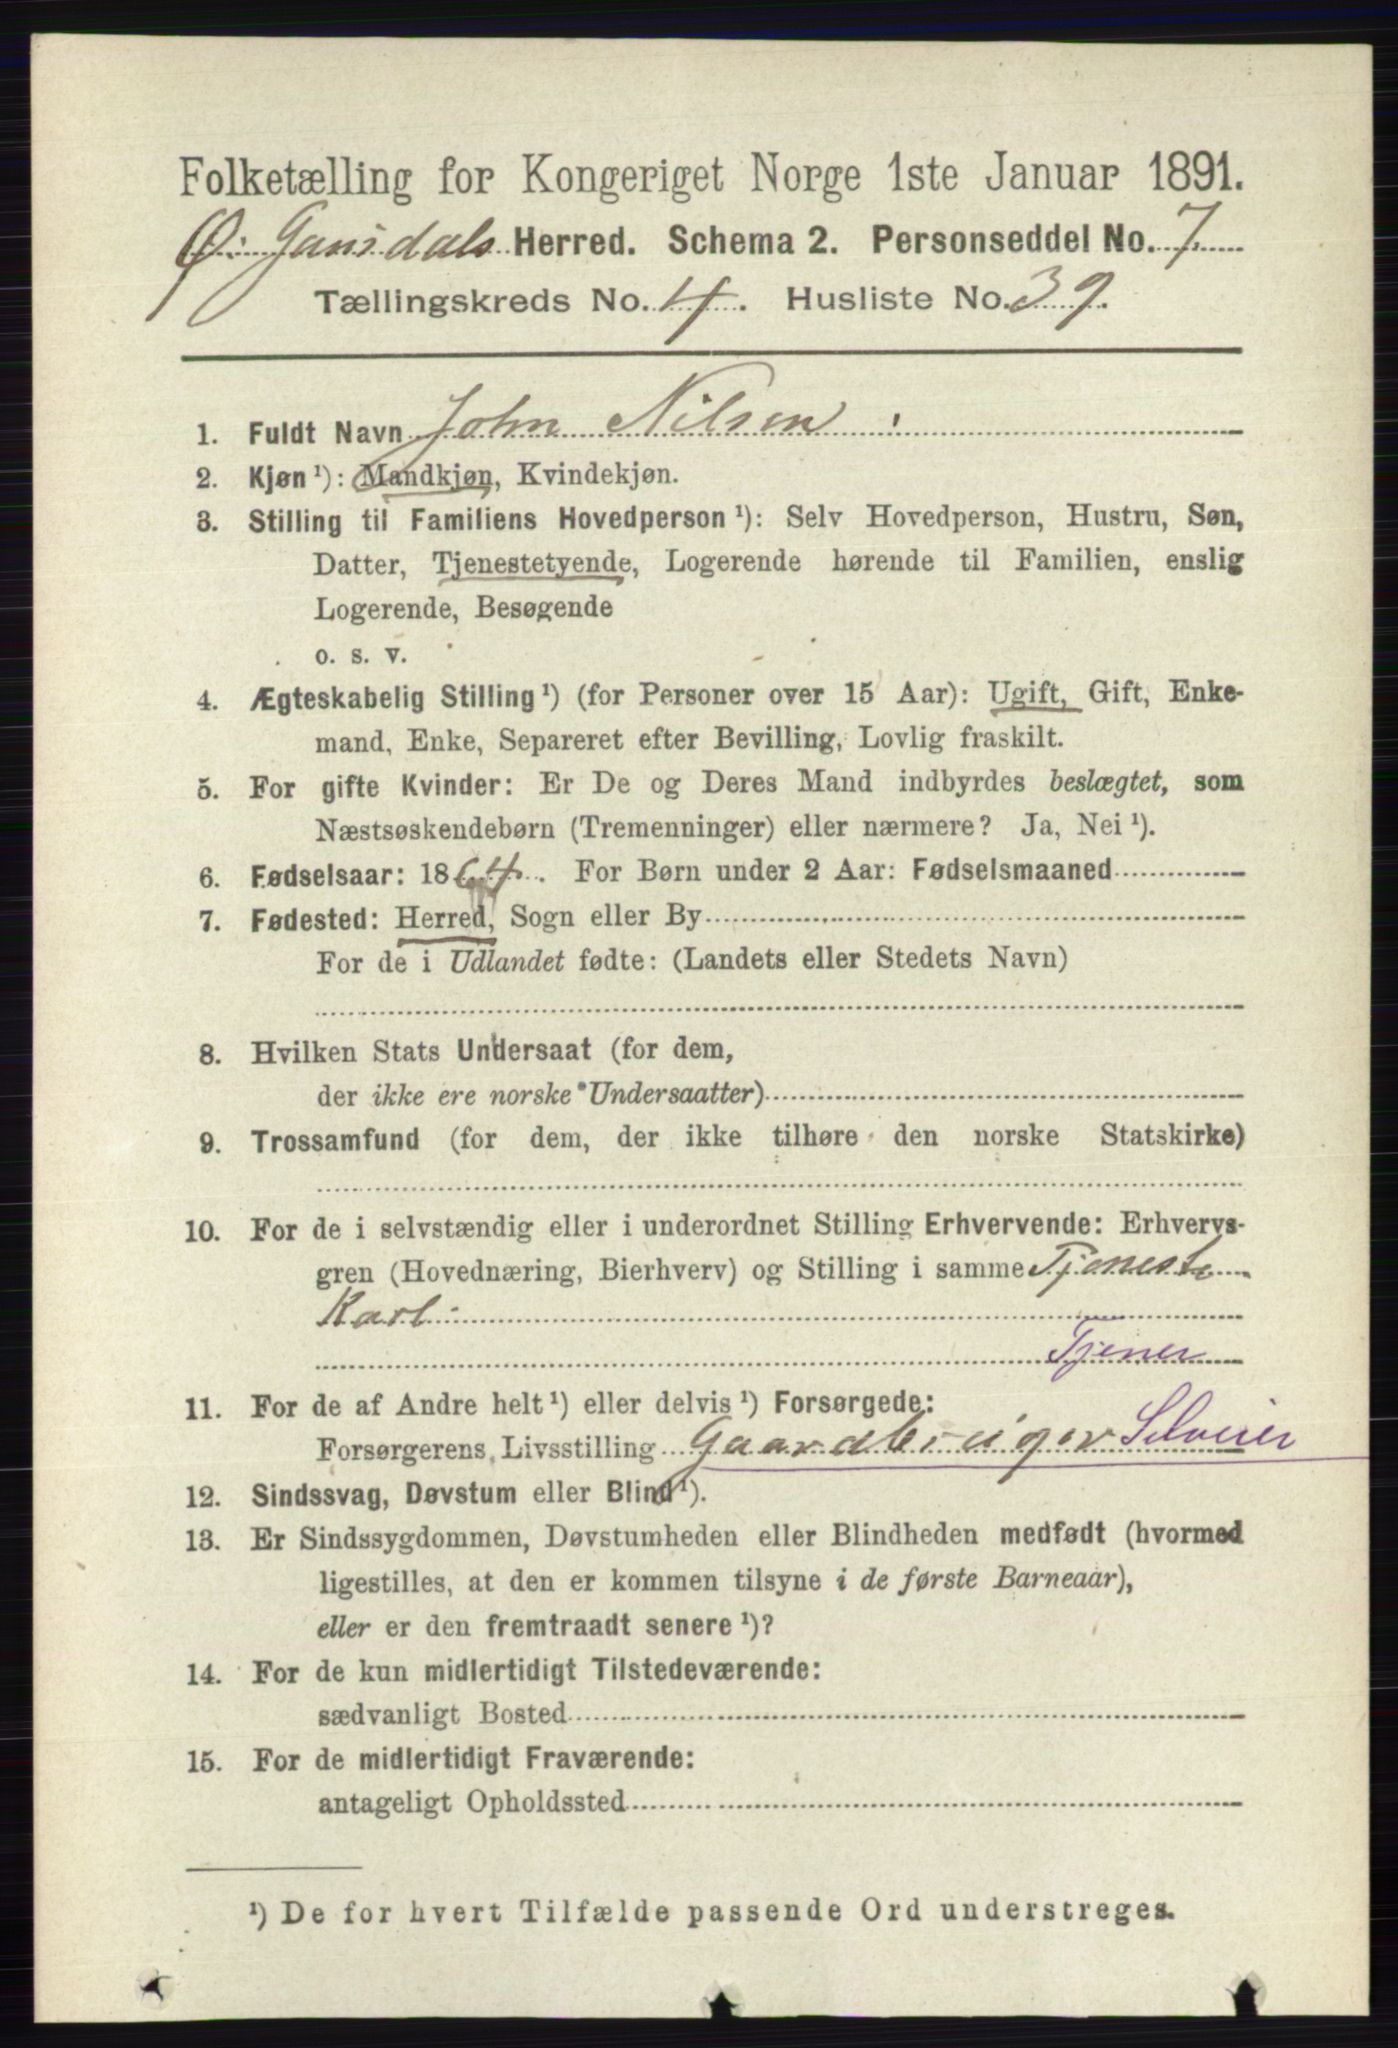 Folketælling for Kongeriget Norge 1ste Januar 1891.
Ø. Gausdals Herred. Schema 2. Personseddel No. 7
Tællingskreds No. 4. Husliste No. 39.
1. Fuldt Navn John Nilsen
2. Kjøn ¹): Mandkjøn, Kvindekjøn.
3. Stilling til Familiens Hovedperson ¹): Selv Hovedperson, Hustru, Søn,
Datter, Tjenestetyende, Logerende hørende til Familien, enslig
Logerende, Besøgende
o. s. v.
4. Ægteskabelig Stilling ¹) (for Personer over 15 Aar): Ugift, Gift, Enke-
mand, Enke, Separeret efter Bevilling, Lovlig fraskilt.
5. For gifte Kvinder: Er De og Deres Mand indbyrdes beslægtet, som
Næstsøskendebørn (Tremenninger) eller nærmere? Ja, Nei ¹).
6. Fødselsaar: 1864. For Børn under 2 Aar: Fødselsmaaned
7. Fødested: Herred, Sogn eller By
For de i Udlandet fødte: (Landets eller Stedets Navn)
8. Hvilken Stats Undersaat (for dem,
der ikke ere norske Undersaatter)
9. Trossamfund (for dem, der ikke tilhøre den norske Statskirke)
10. For de i selvstændig eller i underordnet Stilling Erhvervende: Erhvervs-
gren (Hovednæring, Bierhverv) og Stilling i samme Tjeneste
Karl
Tjener
11. For de af Andre helt ¹) eller delvis ¹) Forsørgede:
Forsørgerens Livsstilling Gaardbruger Selveier
12. Sindssvag, Døvstum eller Blind ¹).
13. Er Sindssygdommen, Døvstumheden eller Blindheden medfødt (hvormed
ligestilles, at den er kommen tilsyne i de første Barneaar),
eller er den fremtraadt senere ¹)?
14. For de kun midlertidigt Tilstedeværende:
sædvanligt Bosted
15. For de midlertidigt Fraværende:
antageligt Opholdssted
¹) De for hvert Tilfælde passende Ord understreges.